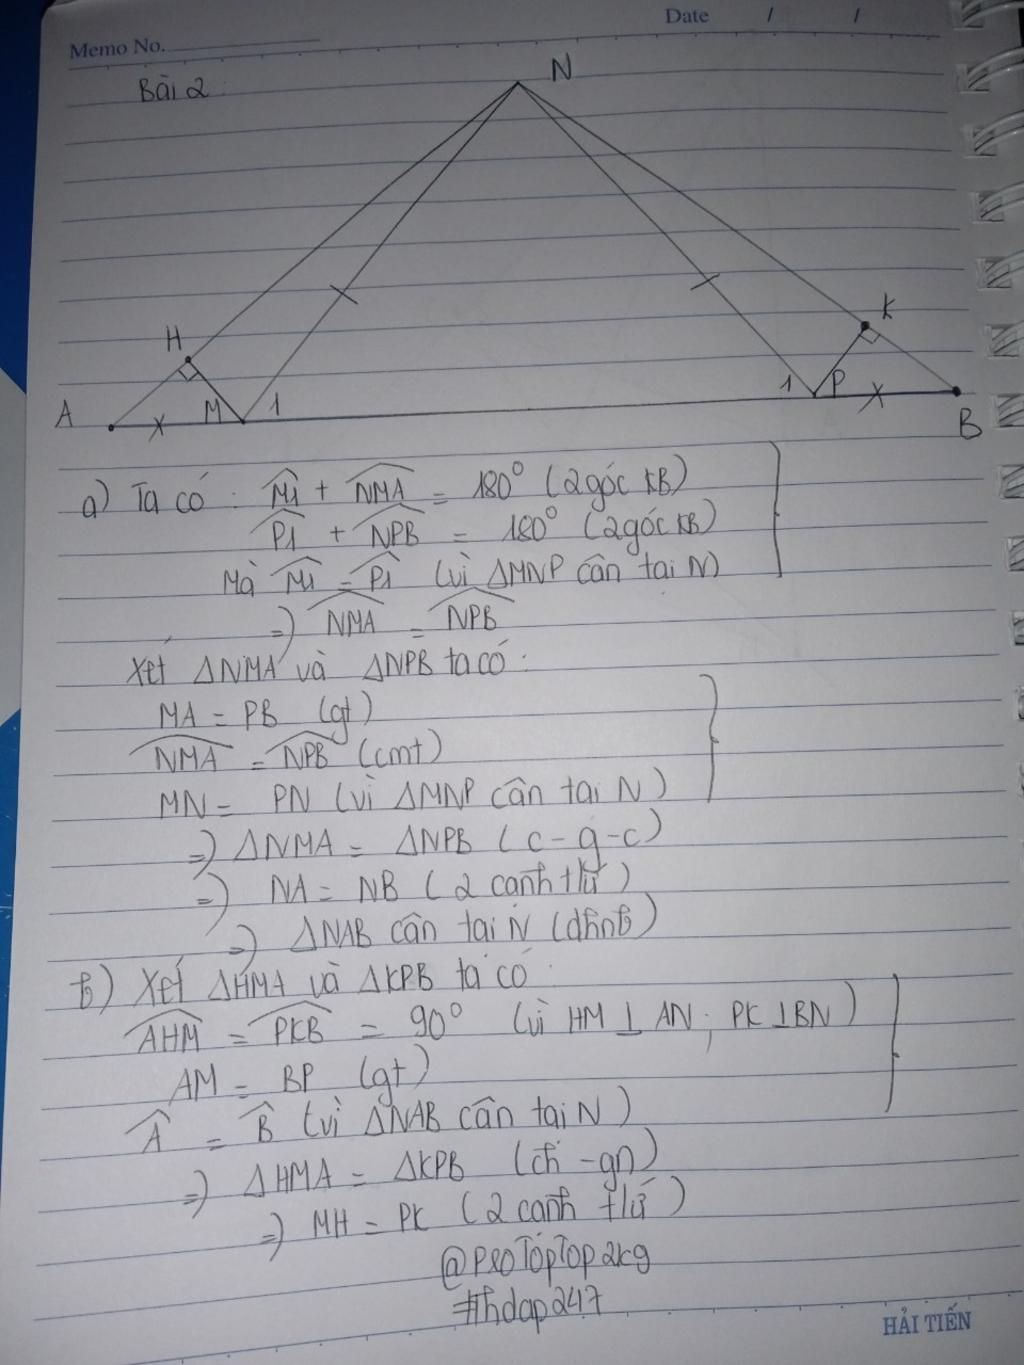 Memo No.
Date / /
Bài 2
N
H
K
A
M
1
1
P
B
a) Ta có : M̂1 + N͡MA = 180° (2 góc KB)
P̂1 + N͡PB = 180° (2 góc KB)
Mà M̂1 = P̂1 (vì ΔMNP cân tại N)
=) N͡MA = N͡PB
Xét ΔNMA và ΔNPB ta có :
MA = PB (gt)
N͡MA = N͡PB (cmt)
MN = PN (vì ΔMNP cân tại N)
=) ΔNMA = ΔNPB (c-g-c)
=) NA = NB (2 cạnh tlứ)
=) ΔNAB cân tại N (dhnb)
b) Xét ΔHMA và ΔKPB ta có :
A͡HM = P͡KB = 90° (vì HM ⊥ AN ; PK ⊥ BN)
AM = BP (gt)
Â = B̂ (vì ΔNAB cân tại N)
=) ΔHMA = ΔKPB (ch - gn)
=) MH = PK (2 cạnh tlứ)
@ProTopTop2kg
#hdap247
HẢI TIẾN